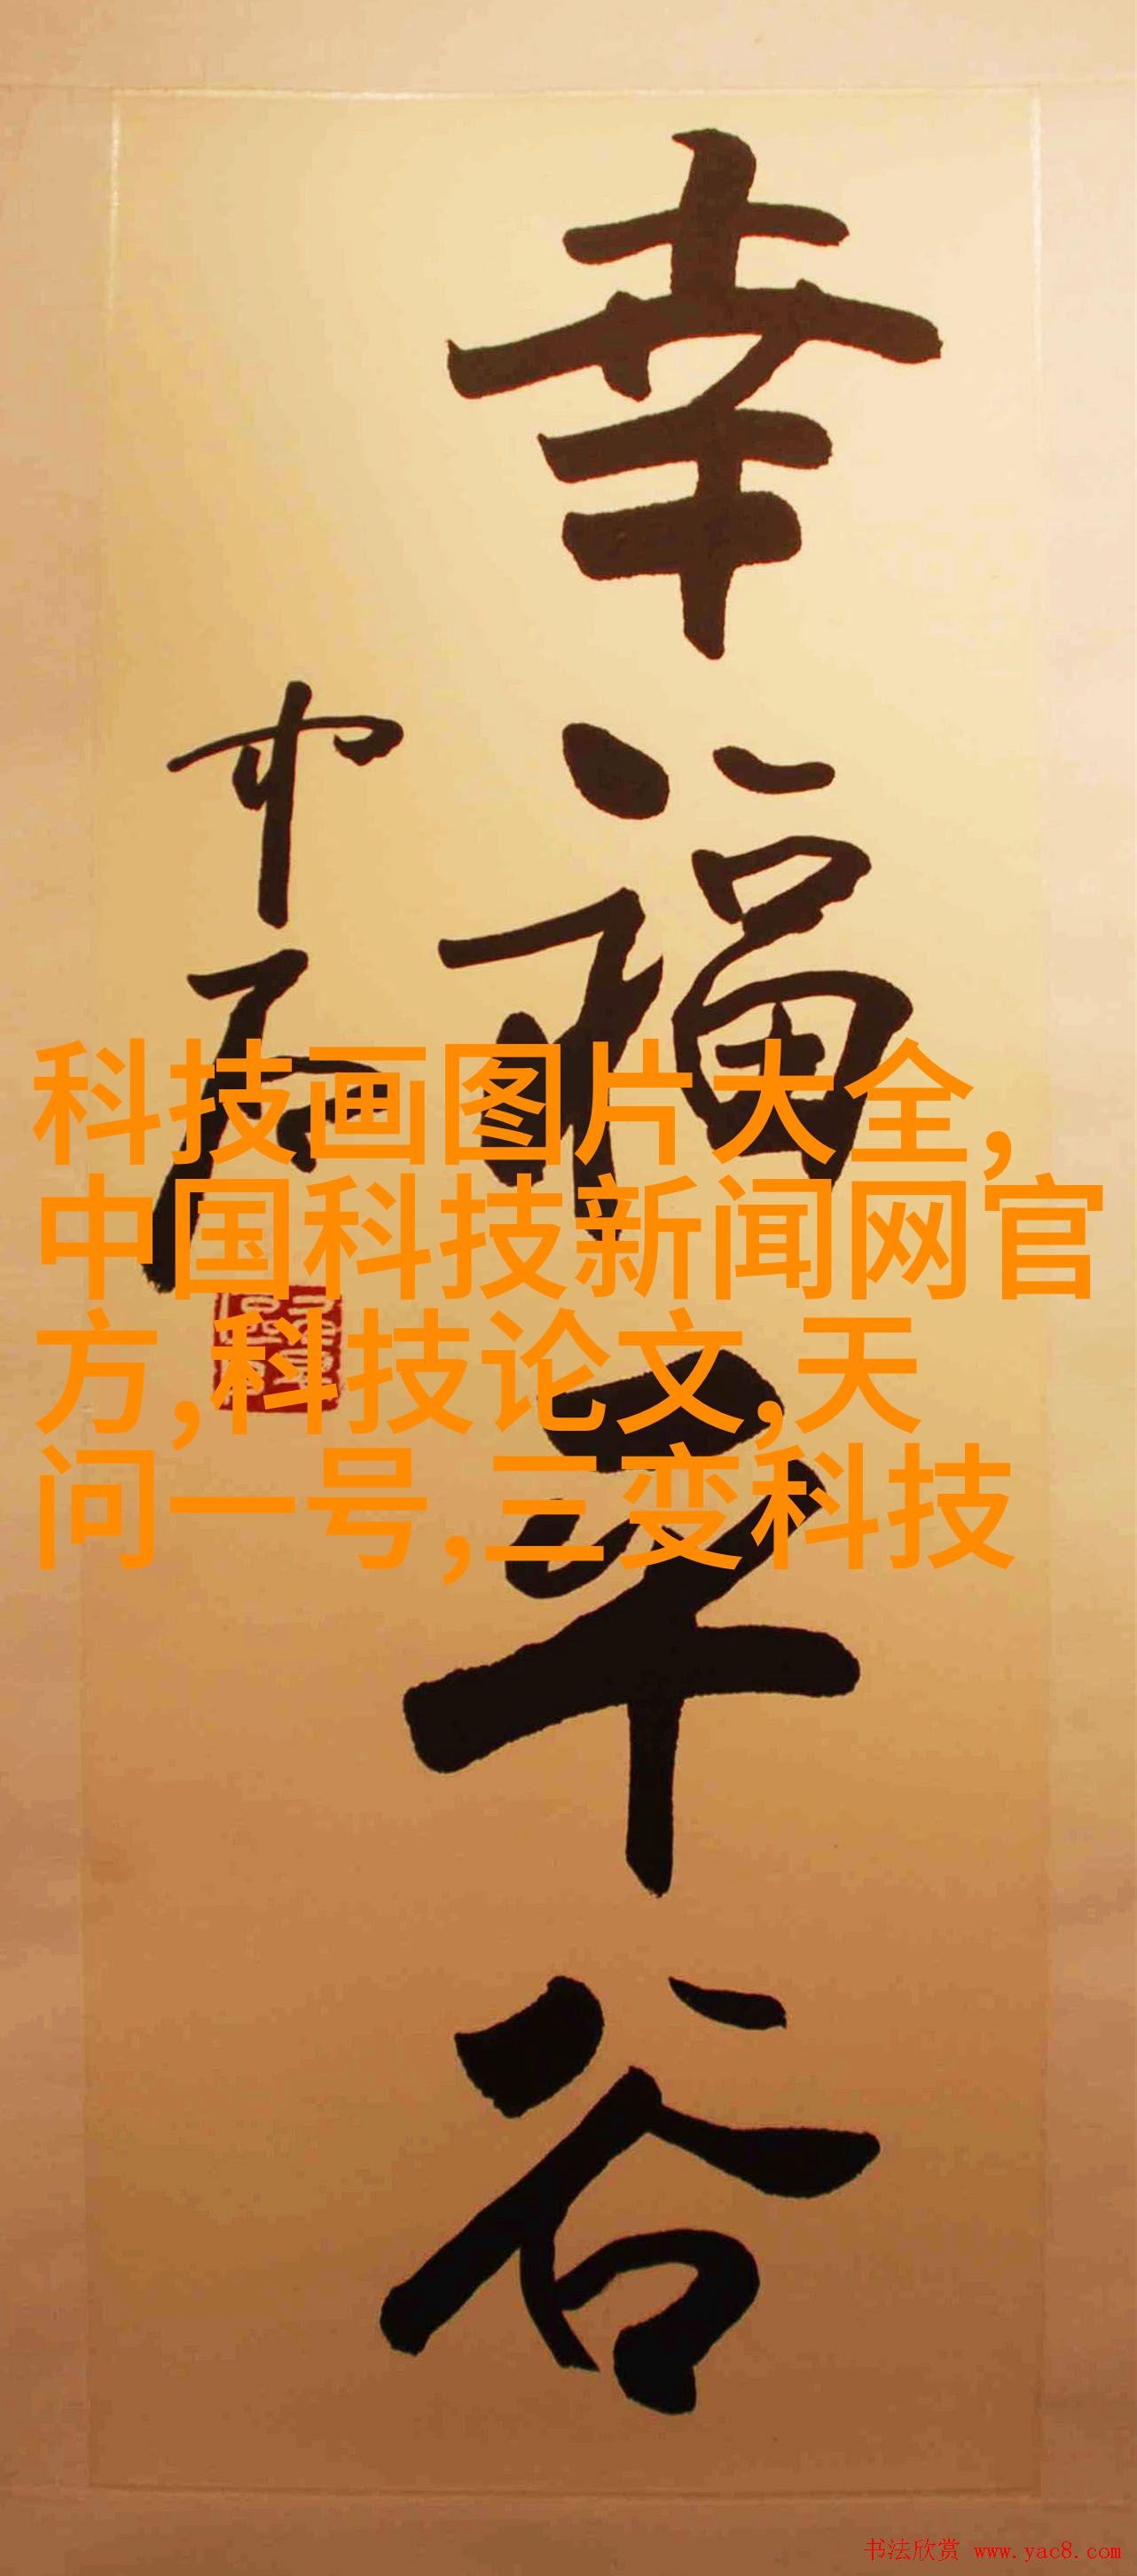 幸福平谷
中石
科技画图片大全,
中国科技新闻网官
方,科技论文,天
问一号,三变科技
书法欣赏 www.yac8.com